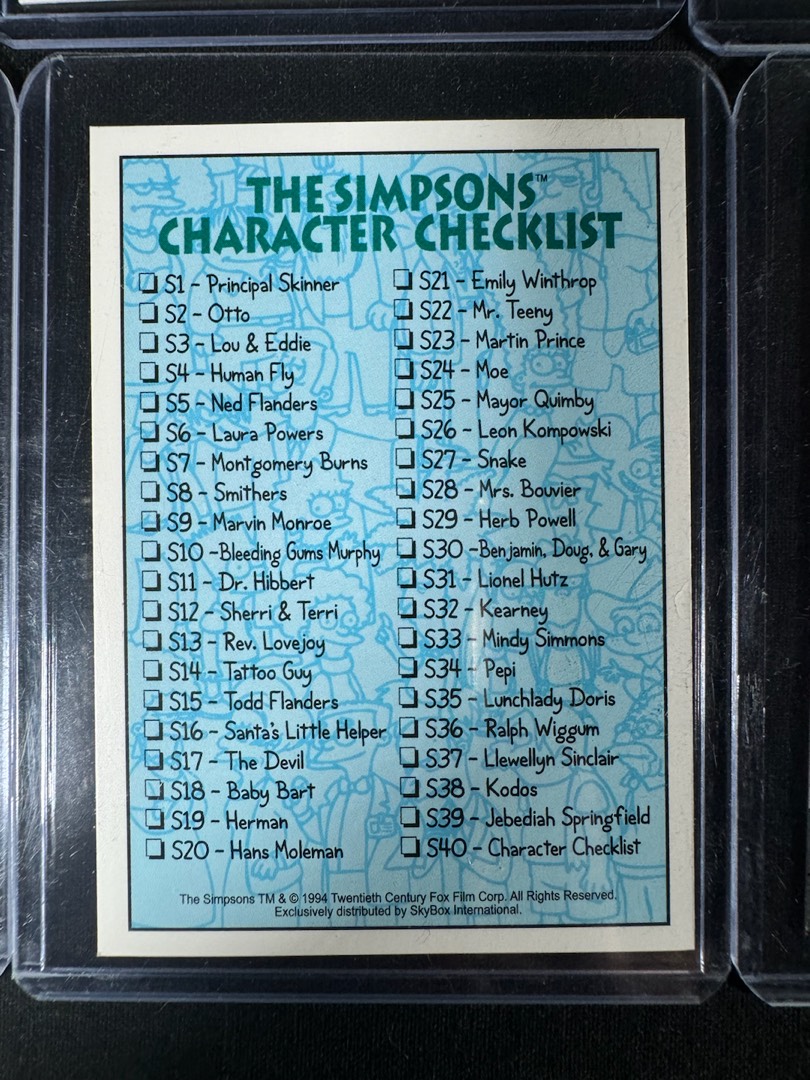 THE SIMPSONS™
CHARACTER CHECKLIST
S1 - Principal Skinner
S2 - Otto
S3 - Lou & Eddie
S4 - Human Fly
S5 - Ned Flanders
S6 - Laura Powers
S7 - Montgomery Burns
S8 - Smithers
S9 - Marvin Monroe
S10 - Bleeding Gums Murphy
S11 - Dr. Hibbert
S12 - Sherri & Terri
S13 - Rev. Lovejoy
S14 - Tattoo Guy
S15 - Todd Flanders
S16 - Santa's Little Helper
S17 - The Devil
S18 - Baby Bart
S19 - Herman
S20 - Hans Moleman
S21 - Emily Winthrop
S22 - Mr. Teeny
S23 - Martin Prince
S24 - Moe
S25 - Mayor Quimby
S26 - Leon Kompowski
S27 - Snake
S28 - Mrs. Bouvier
S29 - Herb Powell
S30 - Benjamin, Doug, & Gary
S31 - Lionel Hutz
S32 - Kearney
S33 - Mindy Simmons
S34 - Pepi
S35 - Lunchlady Doris
S36 - Ralph Wiggum
S37 - Llewellyn Sinclair
S38 - Kodos
S39 - Jebediah Springfield
S40 - Character Checklist
The Simpsons TM & © 1994 Twentieth Century Fox Film Corp. All Rights Reserved.
Exclusively distributed by SkyBox International.